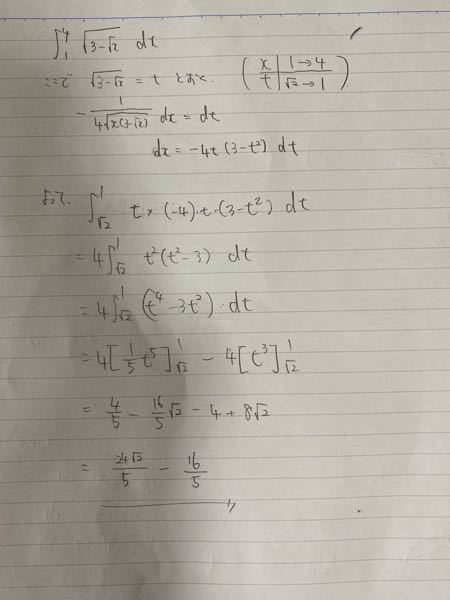 ∫₁⁴ √(3-√x) dx
ここで √(3-√x) = t とおく. ( x | 1→4 / t | √2→1 )
-1/(4√(x(3-√x))) dx = dt
dx = -4t(3-t²) dt
よって. ∫_√2^1 t×(-4)・t・(3-t²) dt
= 4∫_√2^1 t²(t²-3) dt
= 4∫_√2^1 (t⁴-3t²)・dt
= 4[1/5 t⁵]_√2^1 - 4[t³]_√2^1
= 4/5 - 16/5 √2 - 4 + 8√2
= 24√2/5 - 16/5